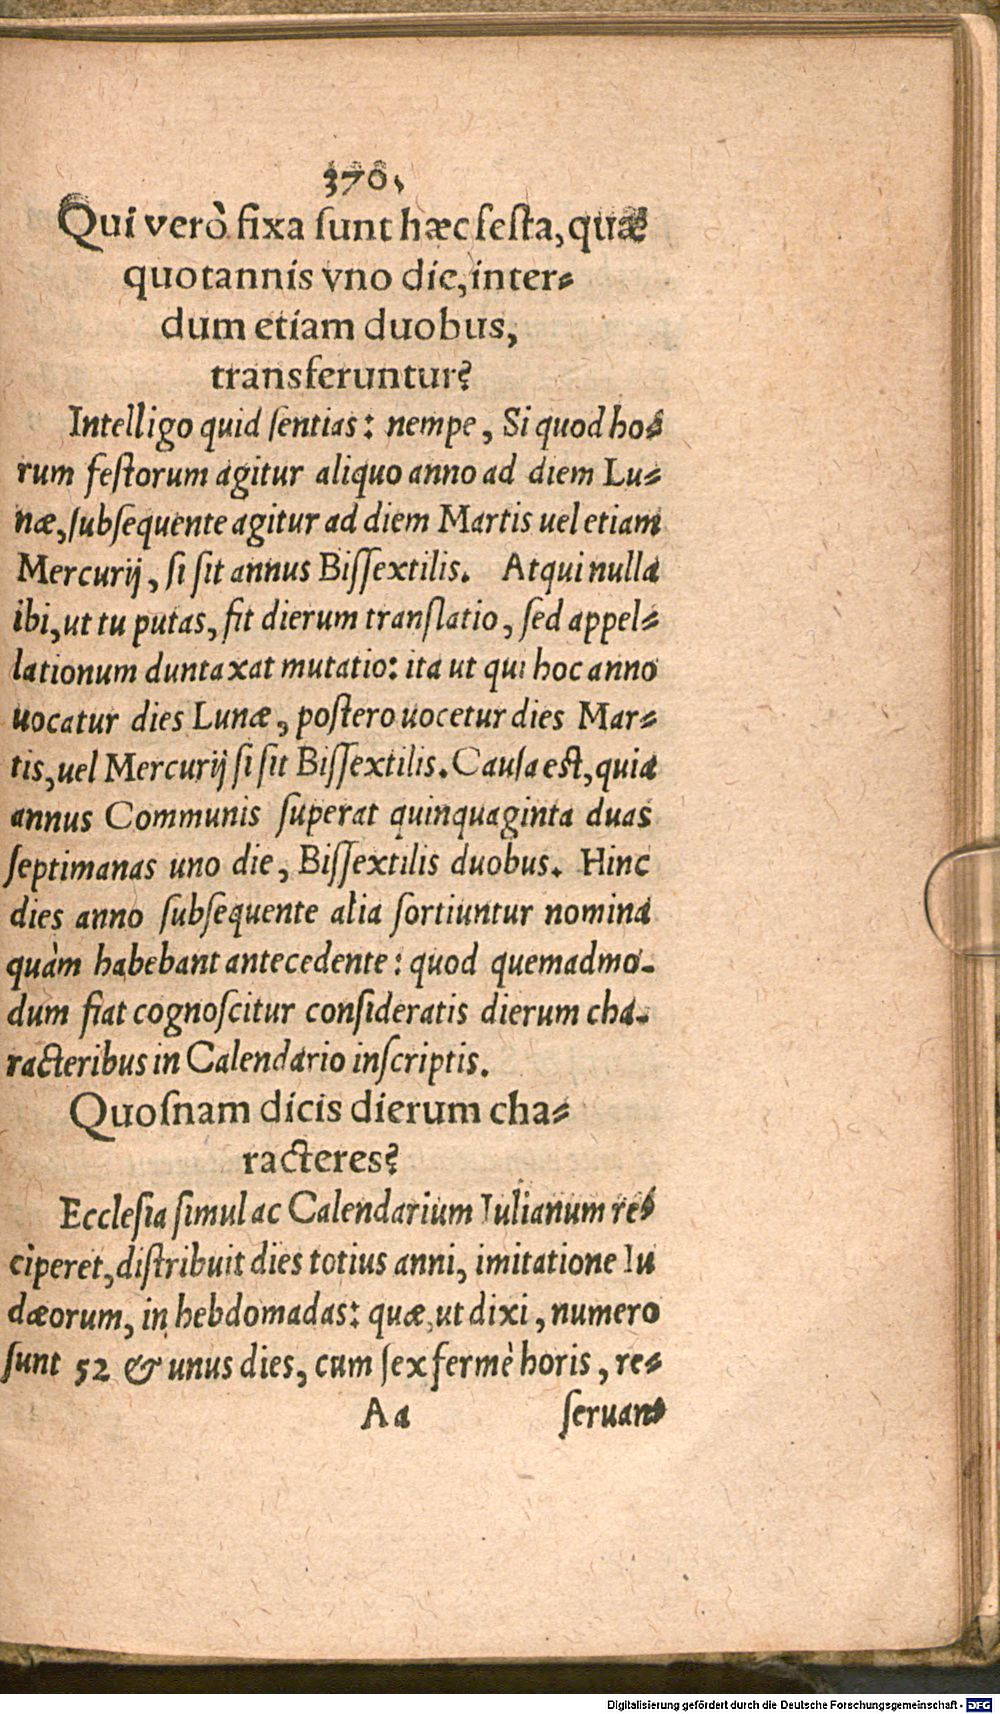 370.
Qui verò fixa ſunt hæc feſta, quæ
quotannis vno die, inter-
dum etiam duobus,
transferuntur?
Intelligo quid ſentias: nempe, Si quod ho-
rum feſtorum agitur aliquo anno ad diem Lu-
næ, ſubſequente agitur ad diem Martis uel etiam
Mercurij, ſi ſit annus Biſſextilis. Atqui nulla
ibi, ut tu putas, fit dierum tranſlatio, ſed appel-
lationum duntaxat mutatio: ita ut qui hoc anno
uocatur dies Lunæ, poſtero uocetur dies Mar-
tis, uel Mercurij ſi ſit Biſſextilis. Cauſa eſt, quia
annus Communis ſuperat quinquaginta duas
ſeptimanas uno die, Biſſextilis duobus. Hinc
dies anno ſubſequente alia ſortiuntur nomina
quàm habebant antecedente: quod quemadmo-
dum fiat cognoſcitur conſideratis dierum cha-
racteribus in Calendario inſcriptis.
Quoſnam dicis dierum cha-
racteres?
Eccleſia ſimul ac Calendarium Iulianum re-
ciperet, diſtribuit dies totius anni, imitatione Iu
dæorum, in hebdomadas: quæ, ut dixi, numero
ſunt 52 & unus dies, cum ſex fermè horis, re-
Aa ſeruan-
Digitalisierung gefördert durch die Deutsche Forschungsgemeinschaft - DFG